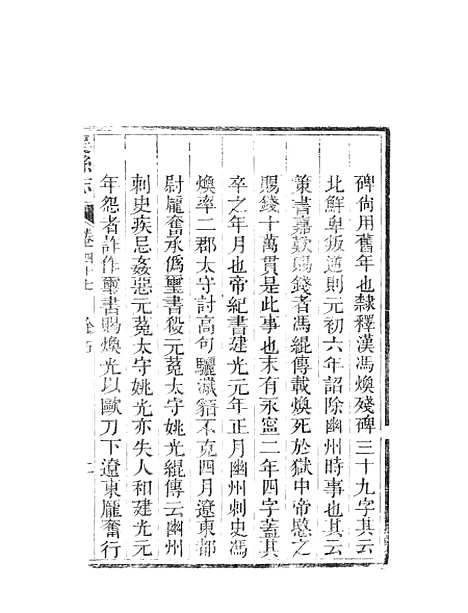 碑尙用舊年也隸釋漢馮煥殘碑三十九字其云
北鮮卑叛逆則元初六年詔除幽州時事也其云
策書嘉歎賜錢者馮緄傳載煥死於獄中帝愍之
賜錢十萬貫是此事也末有永寍二年四字蓋其
卒之年月也帝紀書建光元年正月幽州刺史馮
煥率二郡太守討高句驪濊貊不克四月遼東都
尉龐奮承僞璽書殺元菟太守姚光緄傳云幽州
刺史疾忌姦惡元菟太守姚光亦失人和建光元
年怨者詐作璽書賜煥光以歐刀下遼東龐奮行
縣志 卷四十七